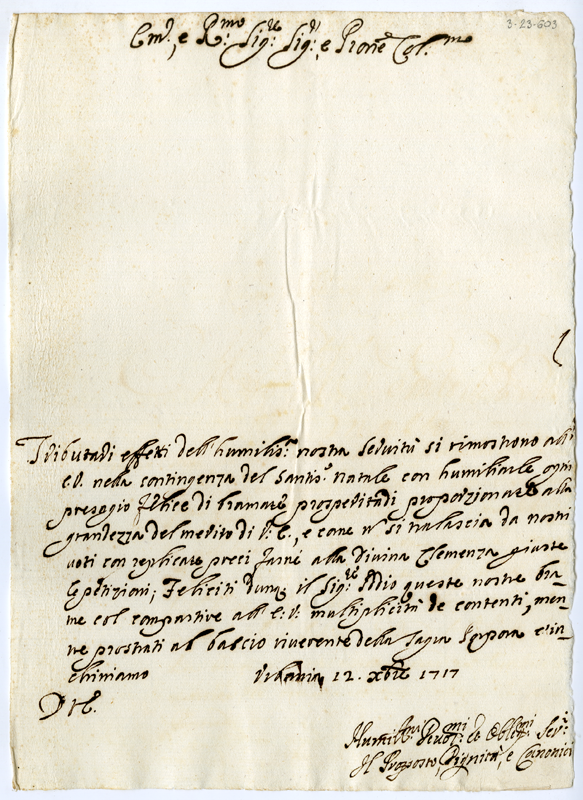 3-23-603
Em.º, e R.mo Sig.re Sig.r, e Prone Col.mo
Tributari effetti dell'humilis.ª nostra servitù si rimostrono all'
E.V. nella contingenza del Santis.º Natale con humiliarle ogni
presaggio felice di bramate prosperità di proporzionare alla
grandezza del merito di V.E., e come nº si tralascia da nostri
voti con replicate preci farne alla Divina Clemenza giuste
le petizioni; Feliciti dunq. il Sig.re Iddio queste nostre bra-
me col compartire all'E.V. multiplicità de contenti, men-
tre prostrati al baccio riverente della sagra Porpora c'in-
chiniamo Urbania 12. Xbre 1717
D.V.E.
Humil.mi Devot.mi et Oblig.mi Ser.i
Il Proposto, Dignità, e Canonici